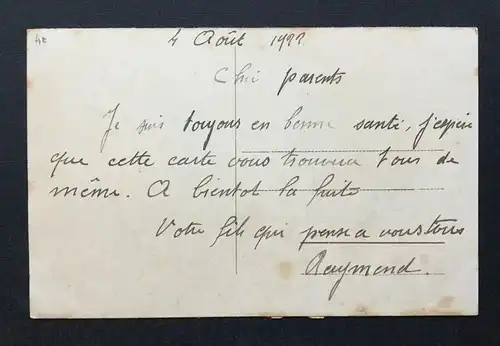 4 Août 1922
Cher parents
Je suis toujours en bonne santé, j'espère
que cette carte vous trouvera tous de
même. A bientot la suite
Votre fils qui pense a vous tous
Raymond.